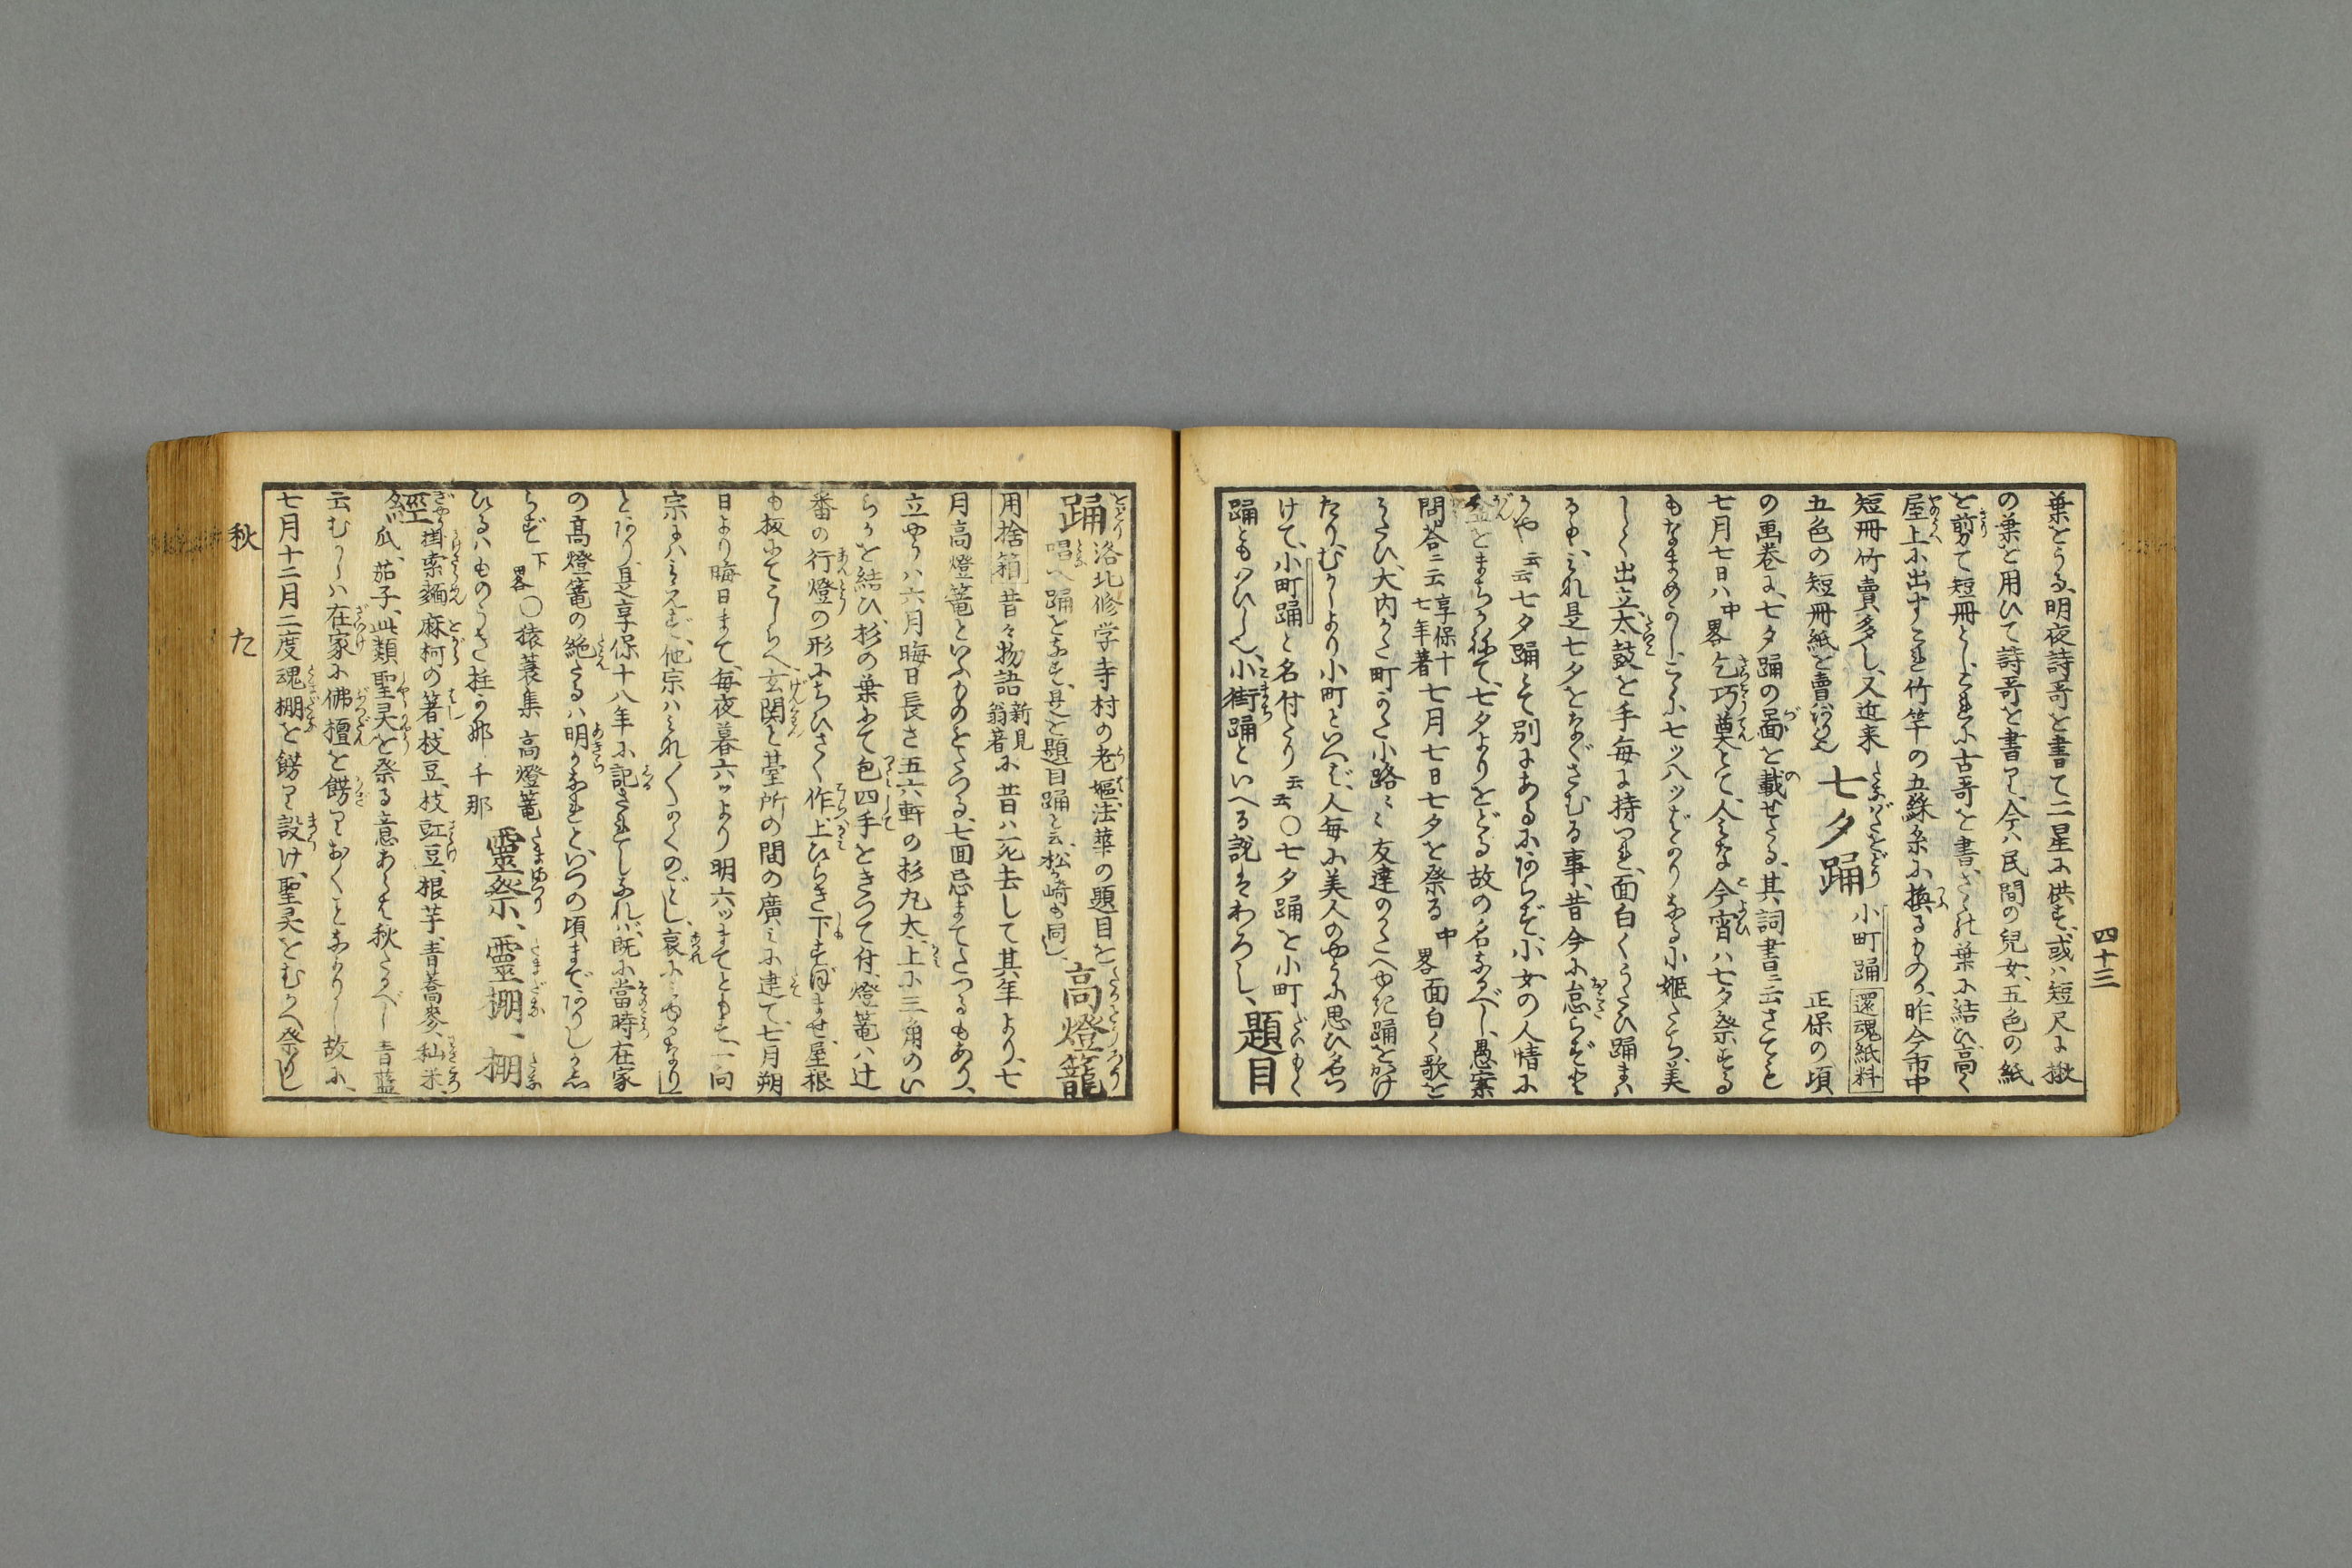 四十三
葉とうる、明夜詩哥と書て二星に供す、或ハ短尺に擬
の葉を用ひて詩哥を書り、今ハ民間の兒女、五色の紙
を剪て短冊とし、これに古哥を書、さゝの葉に結ひ、高く
屋上に出すこれ竹竿の五綵糸に換るもの、昨今市中
短冊竹賣多し、又近来
五色の短冊紙を賣
七夕踊
小町踊
還魂紙料
正保の頃
の画巻に、七夕踊の啚を載せたる、其詞書ニ云さてまた
七月七日ハ中畧乞巧奠とて、人みな今宵ハ七夕祭する
もなまめかし、こゝに七ッ八ッばかりなる小姫たち、美
しく出立、太鼓を手毎に持つれ、面白くうたひ踊ま
るも、これ是七夕をなぐさむる事、昔今に怠らずと
かや云云七夕踊とて別にあるにあらず、小女の人情に
盆をまちかねて、七夕よりをどる故の名なるべし、愚案
問荅ニ云享保十七年著七月七日七夕を祭る中畧面白く歌を
うたひ、大内かた町かた小路ミミ友達のかたへゆき踊をかけ
たり、むかしより小町といへば、人毎に美人のやうに思ひ名つ
けて、小町踊と名付たり云云〇七夕踊を小町
踊ともいひしん、小街踊といへる説はわろし、
題目
踊
洛北修学寺村の老嫗法華の題目を
唱へ踊をなす、是を題目踊と云、松ヶ崎も同し
高燈籠
用捨箱
昔々物語新見翁著に昔ハ死去して其年より、七
月高燈篭といふものをたつる、七回忌まてたつるもあり、
立やうハ六月晦日長さ五六軒の杉丸太、上に三角のい
らかを結ひ、杉の葉にて包四手ときつて付、燈篭ハ辻
番の行燈の形にちひさく作、上ひらき下すぼませ、屋根
も板にてこしらへ、玄関と䑓所の間の廣ミに建て、七月朔
日より晦日まて、毎夜暮六ッより明六ッまてともす、一向
宗にハみえず、他宗ハこれ〱かくのごとし、哀にみゆるなり
とあり、是享保十八年に記されてしふれバ、既に當時在家
の高燈篭の絶たるハ明かなれと、いつの頃まてありしか志
らず下畧〇猿蓑集 高燈篭
ひるハものうき柱かな 千那
靈祭、靈棚、棚
經
掛索麺、麻柯の箸、枝豆、枝豇豆、根芋、青蕎麥、籼米、
瓜、茄子、此類聖㚑を祭る意あらハ秋たるべし 青藍
云むかしハ在家に佛檀を餝りおくことなかりし故に、
七月十二月二度魂棚を餝り設け、聖㚑をむかへ祭りし
秋
た